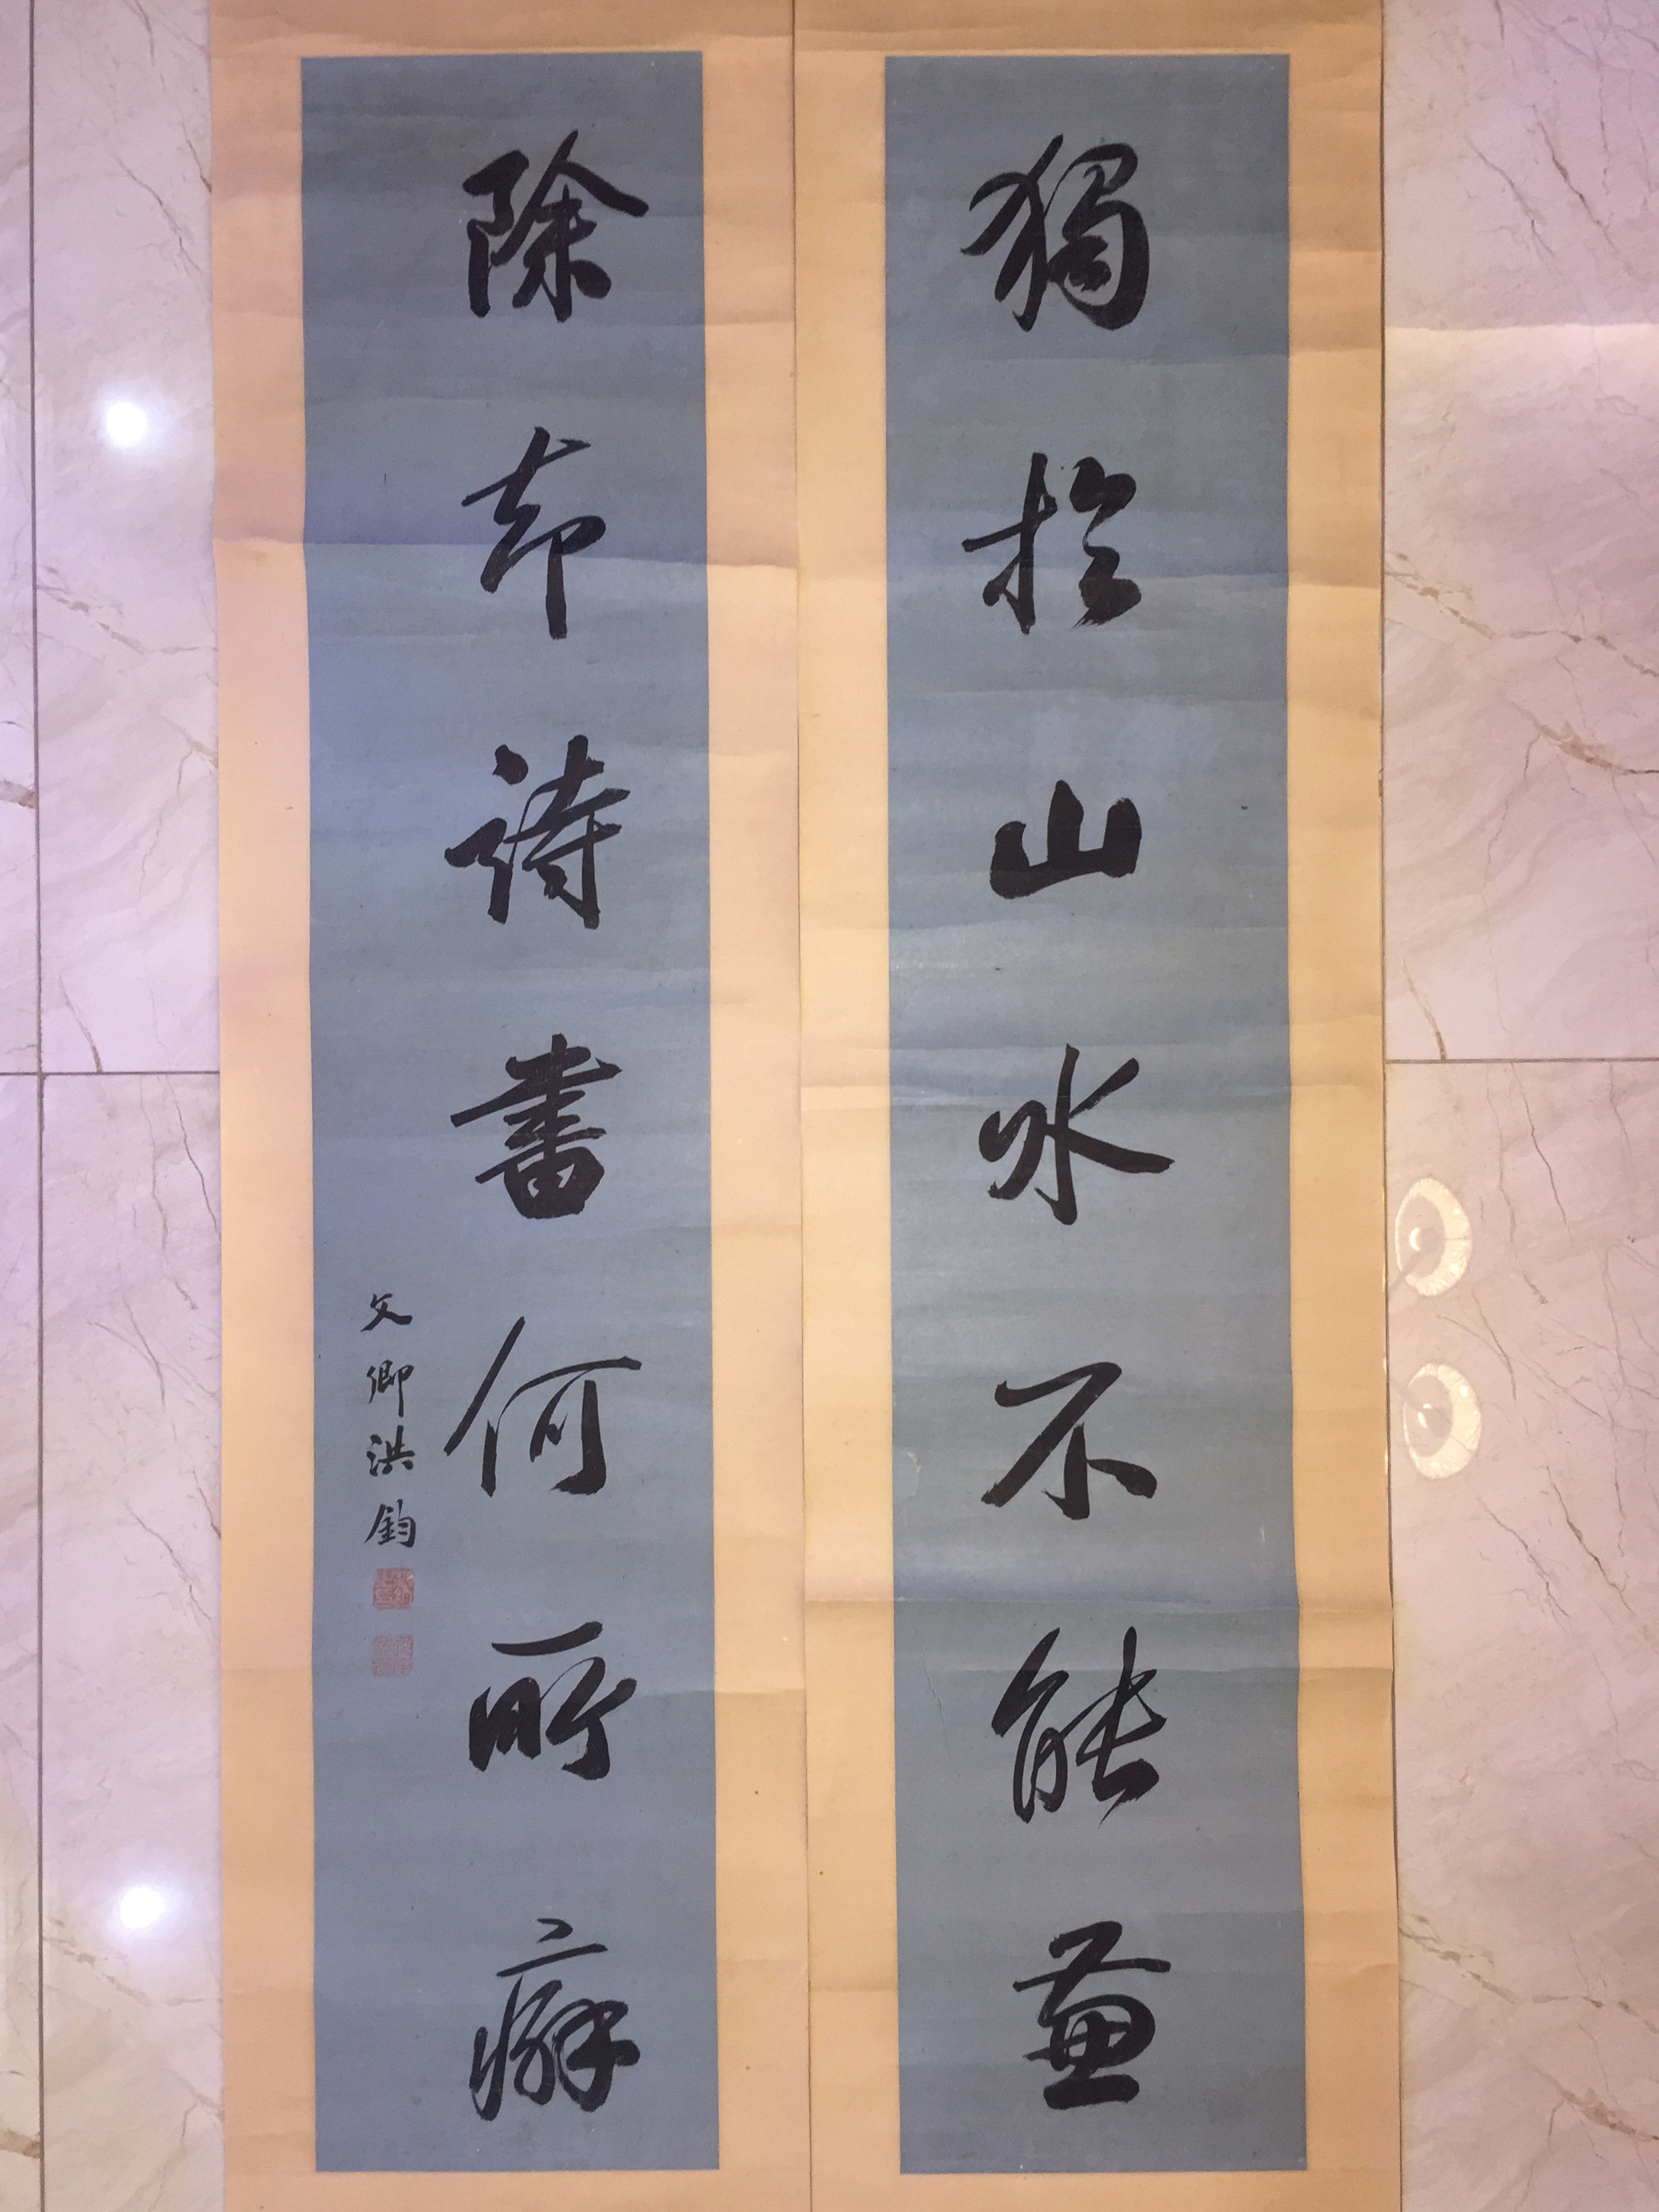 獨於山水不能廉
除却詩書何所癖
文卿洪鈞